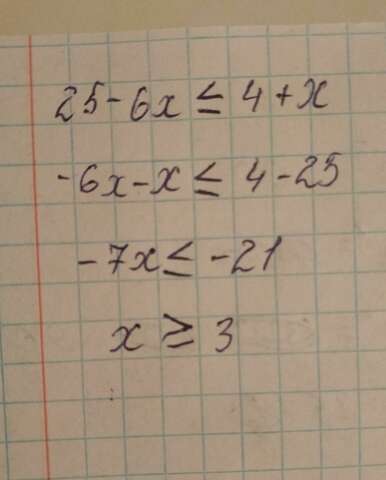 25-6x ≤ 4+x
-6x-x ≤ 4-25
-7x ≤ -21
x ≥ 3